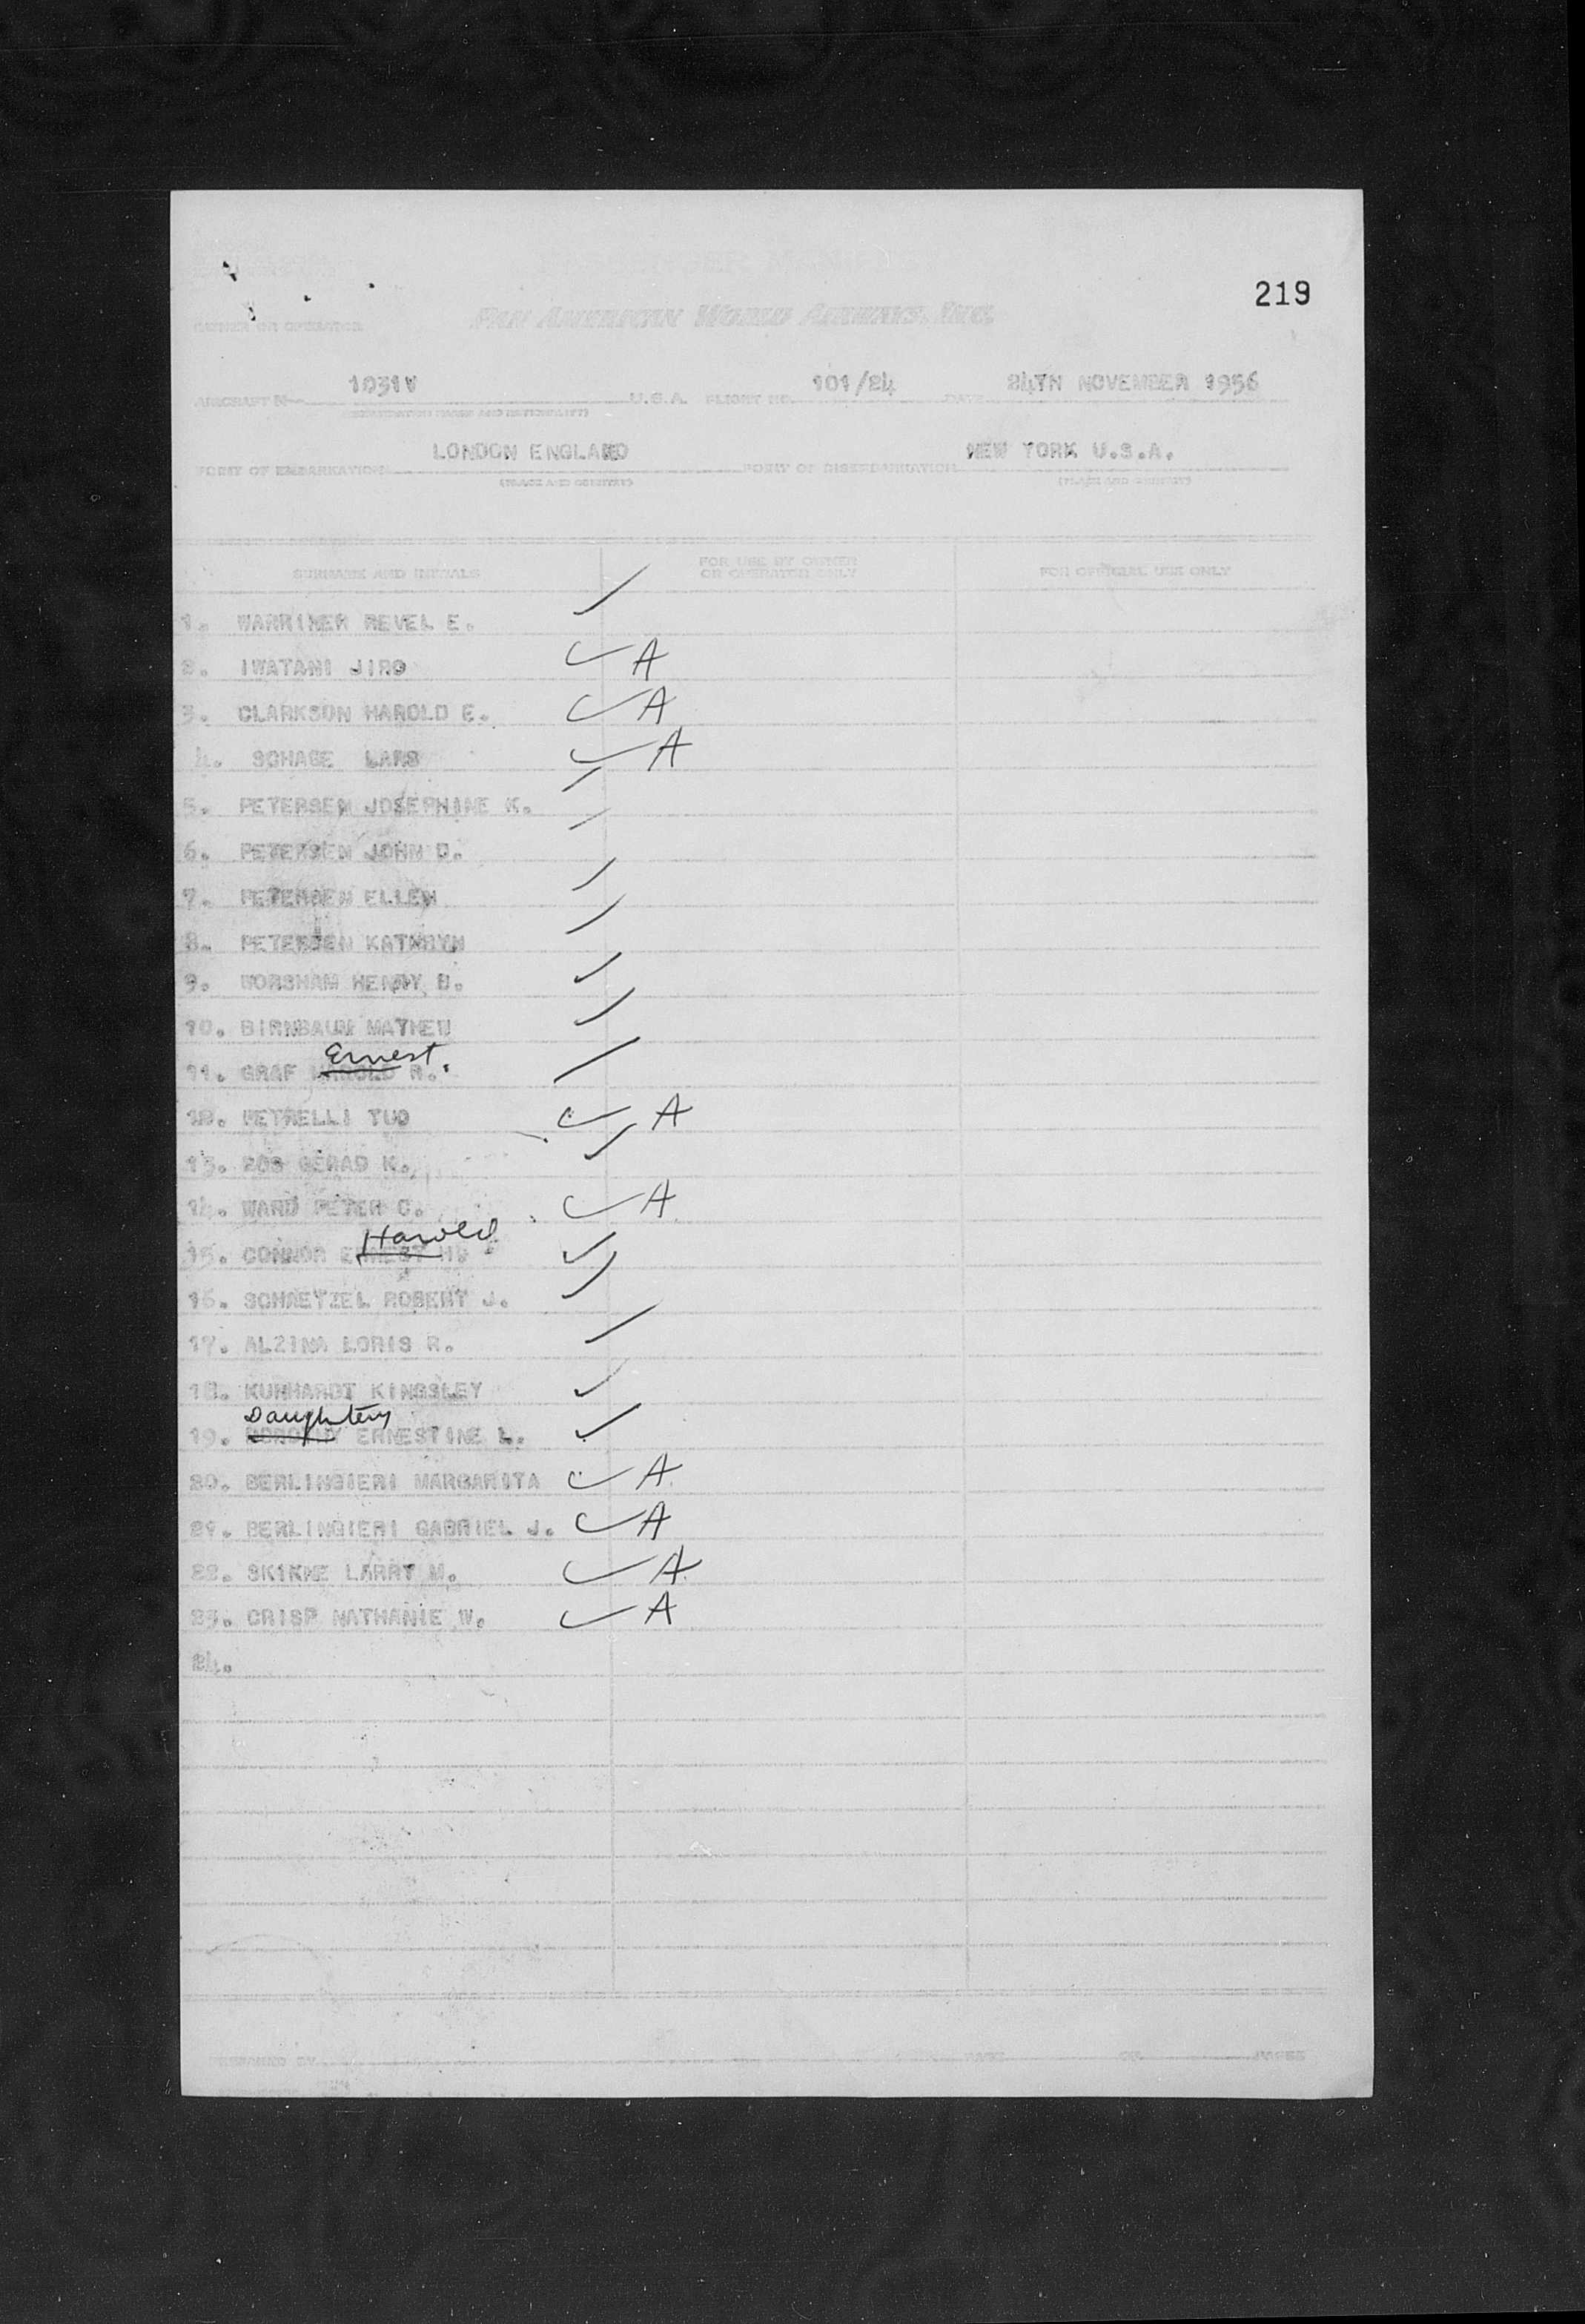 PASSENGER MANIFEST
219
OWNER OR OPERATOR PAN AMERICAN WORLD AIRWAYS, INC.
AIRCRAFT N- 1031V U.S.A. FLIGHT NO. 101/24 DATE 24TH NOVEMBER 1956
(REGISTRATION MARKS AND NATIONALITY)
POINT OF EMBARKATION LONDON ENGLAND POINT OF DISEMBARKATION NEW YORK U.S.A.
(PLACE AND COUNTRY) (PLACE AND COUNTRY)
SURNAME AND INITIALS FOR USE BY OWNER OR OPERATOR ONLY FOR OFFICIAL USE ONLY
1. WARRINER REVEL E. ✓
2. IWATANI JIRO ✓ A
3. CLARKSON HAROLD E. ✓ A
4. SCHAGE LARS ✓ A
5. PETERSEN JOSEPHINE K. ✓
6. PETERSEN JOHN D. ✓
7. PETERSEN ELLEN ✓
8. PETERSEN KATHRYN ✓
9. WORSHAM HENRY B. ✓
10. BIRNBAUM MATHEW ✓
Ernest.
11. GRAF HAROLD R. ✓
12. PETRELLI TUO ✓ A
13. ROB GERAD K. ✓
14. WARD PETER C. ✓ A
Harold
15. CONNOR ERNEST ✓
16. SCHAETZEL ROBERT J. ✓
17. ALZINA LORIS R. ✓
18. KUNHARDT KINGSLEY ✓
Daughtery
19. DOROTHY ERNESTINE L. ✓
20. BERLINGIERI MARGARITA ✓ A
21. BERLINGIERI GABRIEL J. ✓ A
22. SKIKNE LARRY M. ✓ A
23. CRISP NATHANIE W. ✓ A
24.
PREPARED BY PAGE OF PAGES